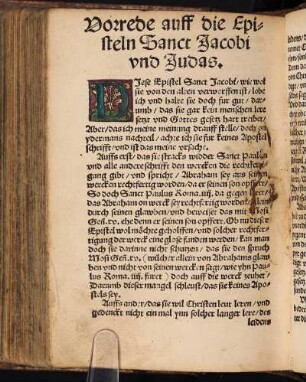 Vorrede auff die Epi-
steln Sanct Jacobi
vnd Judas.
Diese Epistel Sanct Jacobi/ wie wol
sie von den alten verworffen ist/ lobe
ich vnd halte sie doch fur gut/ dar-
umb/ das sie gar kein menschen lere
setzt vnd Gottes gesetz hart treibet/
Aber/ das ich meine meinung drauff stelle/ doch on
yedermans nachteil/ achte ich sie fur keines Apostel
schrifft/ vnd ist das meine vrsach.
Auffs erst/ das sie stracks widder Sanct Paulon
vnd alle andere schrifft den wercken die rechtferti-
gung gibt/ vnd spricht/ Abraham sey aus seinen
wercken rechtfertig worden/ da er seinen son opffert/
So doch Sanct Paulus Roma. iiij. da gegen leret/
das Abraham on werck sey rechtfertig worden/ allein
durch seinen glawben/ vnd beweiset das mit Mosi
Gen. xv. ehe denn er seinen son opffert. Ob nu dieser
Epistel wol möchte geholffen/ vnd solcher rechtfer-
tigung der werck eine glose funden werden/ kan man
doch sie darinne nicht schutzen/ das sie den spruch
Mosi Gen. xv. (wilcher allein von Abrahams glaw-
ben vnd nicht von seinen wercken sagt/ wie yhn Pau-
lus Roma. iiij. furet) doch auff die werck zeuhet/
Darumb dieser mangel schleust/ das sie keines Apo-
stels sey.
Auffs ander/ das sie wil Christen leut leren/ vnd
gedenckt nicht ein mal ynn solcher langer lere/ des
leidens